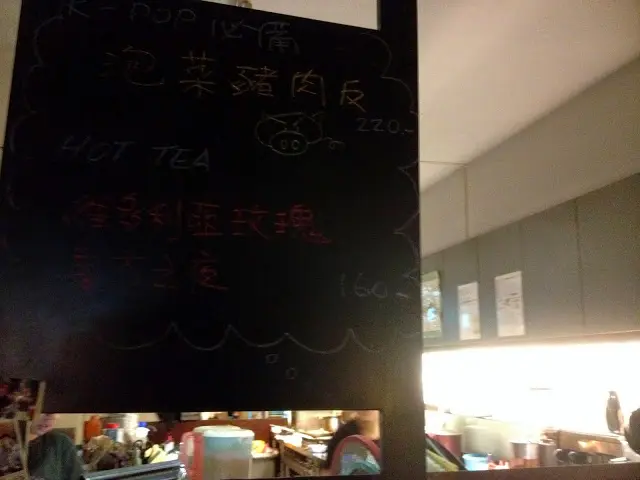 K-POP 必備
泡菜豬肉反
220.-
HOT TEA
維多利亞玫瑰
160.-